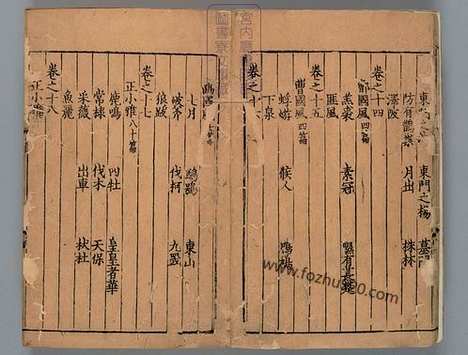 東門之楊 墓門
防有鵲巢 月出 株林
澤陂
卷之十四
檜國風四篇
羔裘 素冠 隰有萇楚
匪風
卷之十五
曹國風四篇
蜉蝣 候人 鳲鳩
下泉
卷之十六
七月 鴟鴞 東山
破斧 伐柯 九罭
狼跋
卷之十七
正小雅
鹿鳴 四牡 皇皇者華
常棣 伐木 天保
采薇 出車 杕杜
魚麗
卷之十八
正小雅
www.fozhu920.com